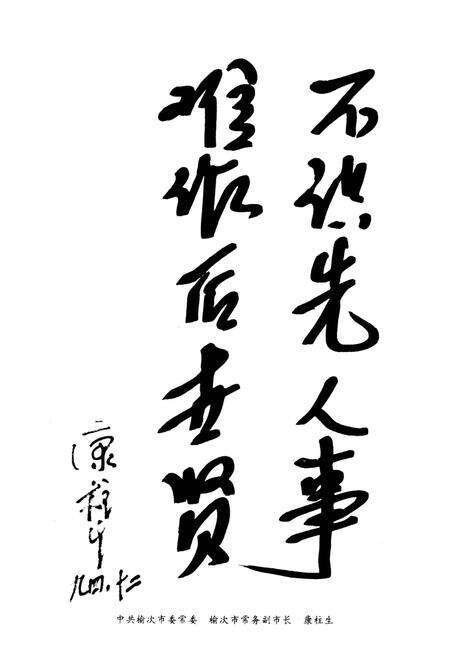 不识先人事
难作后世贤
康柱生
九四.十二
中共榆次市委常委　榆次市常务副市长　康柱生